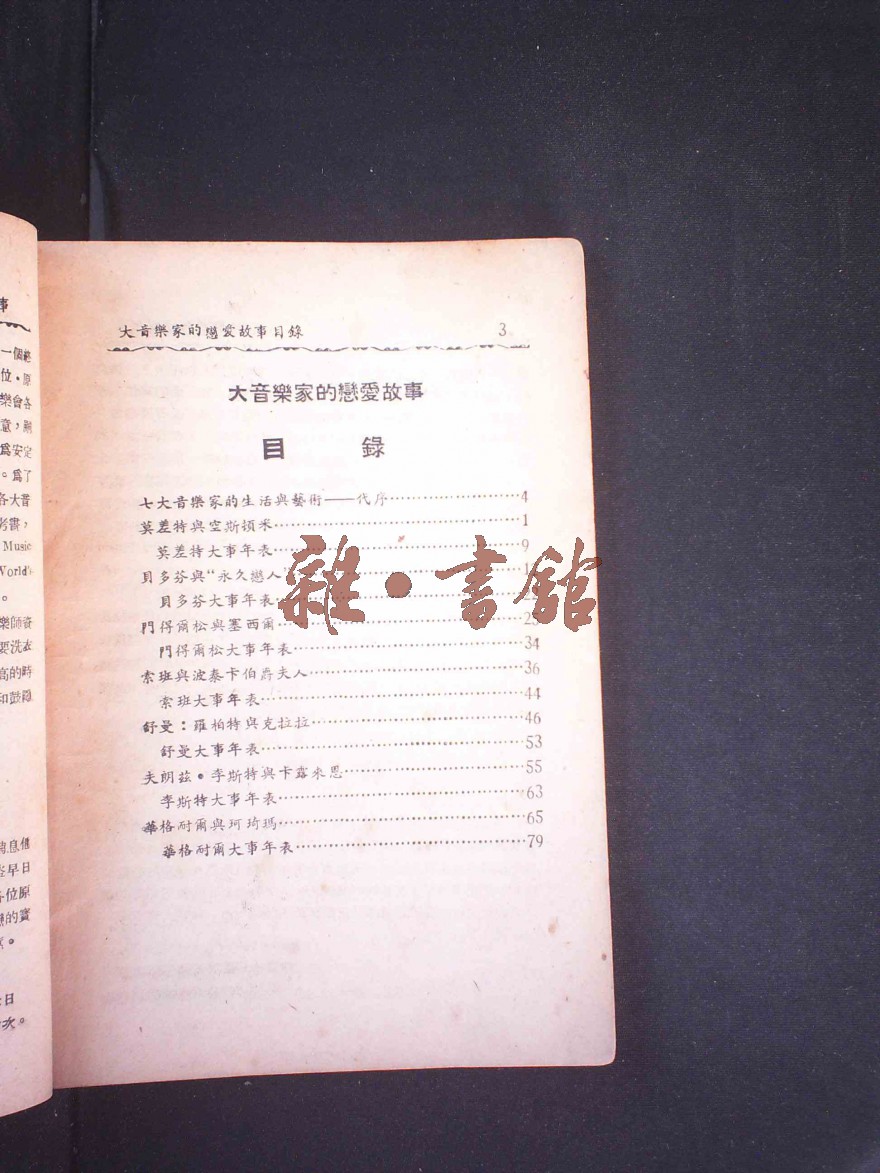 事
一個絕
位,原
樂會各
意,剛
爲安定
。爲了
各大音
考書,
Music
World's
。
樂師資
要洗衣
高的時
和鼓
他
早日
各位原
的寶
。
日
次。
大音樂家的戀愛故事目錄 3
大音樂家的戀愛故事
目 錄
七大音樂家的生活與藝術——代序…………………4
莫差特與空斯頓米…………………………1
莫差特大事年表…………………………9
貝多芬與“永久戀人”
貝多芬大事年表
門得爾松與塞西爾……………………25
門得爾松大事年表………………………34
索班與波泰卡伯爵夫人……………………36
索班大事年表…………………………44
舒曼:羅柏特與克拉拉……………………46
舒曼大事年表…………………………53
夫朗茲•李斯特與卡露米恩…………………55
李斯特大事年表…………………………63
華格耐爾與珂琦瑪………………………65
華格耐爾大事年表………………………79
雜•書館